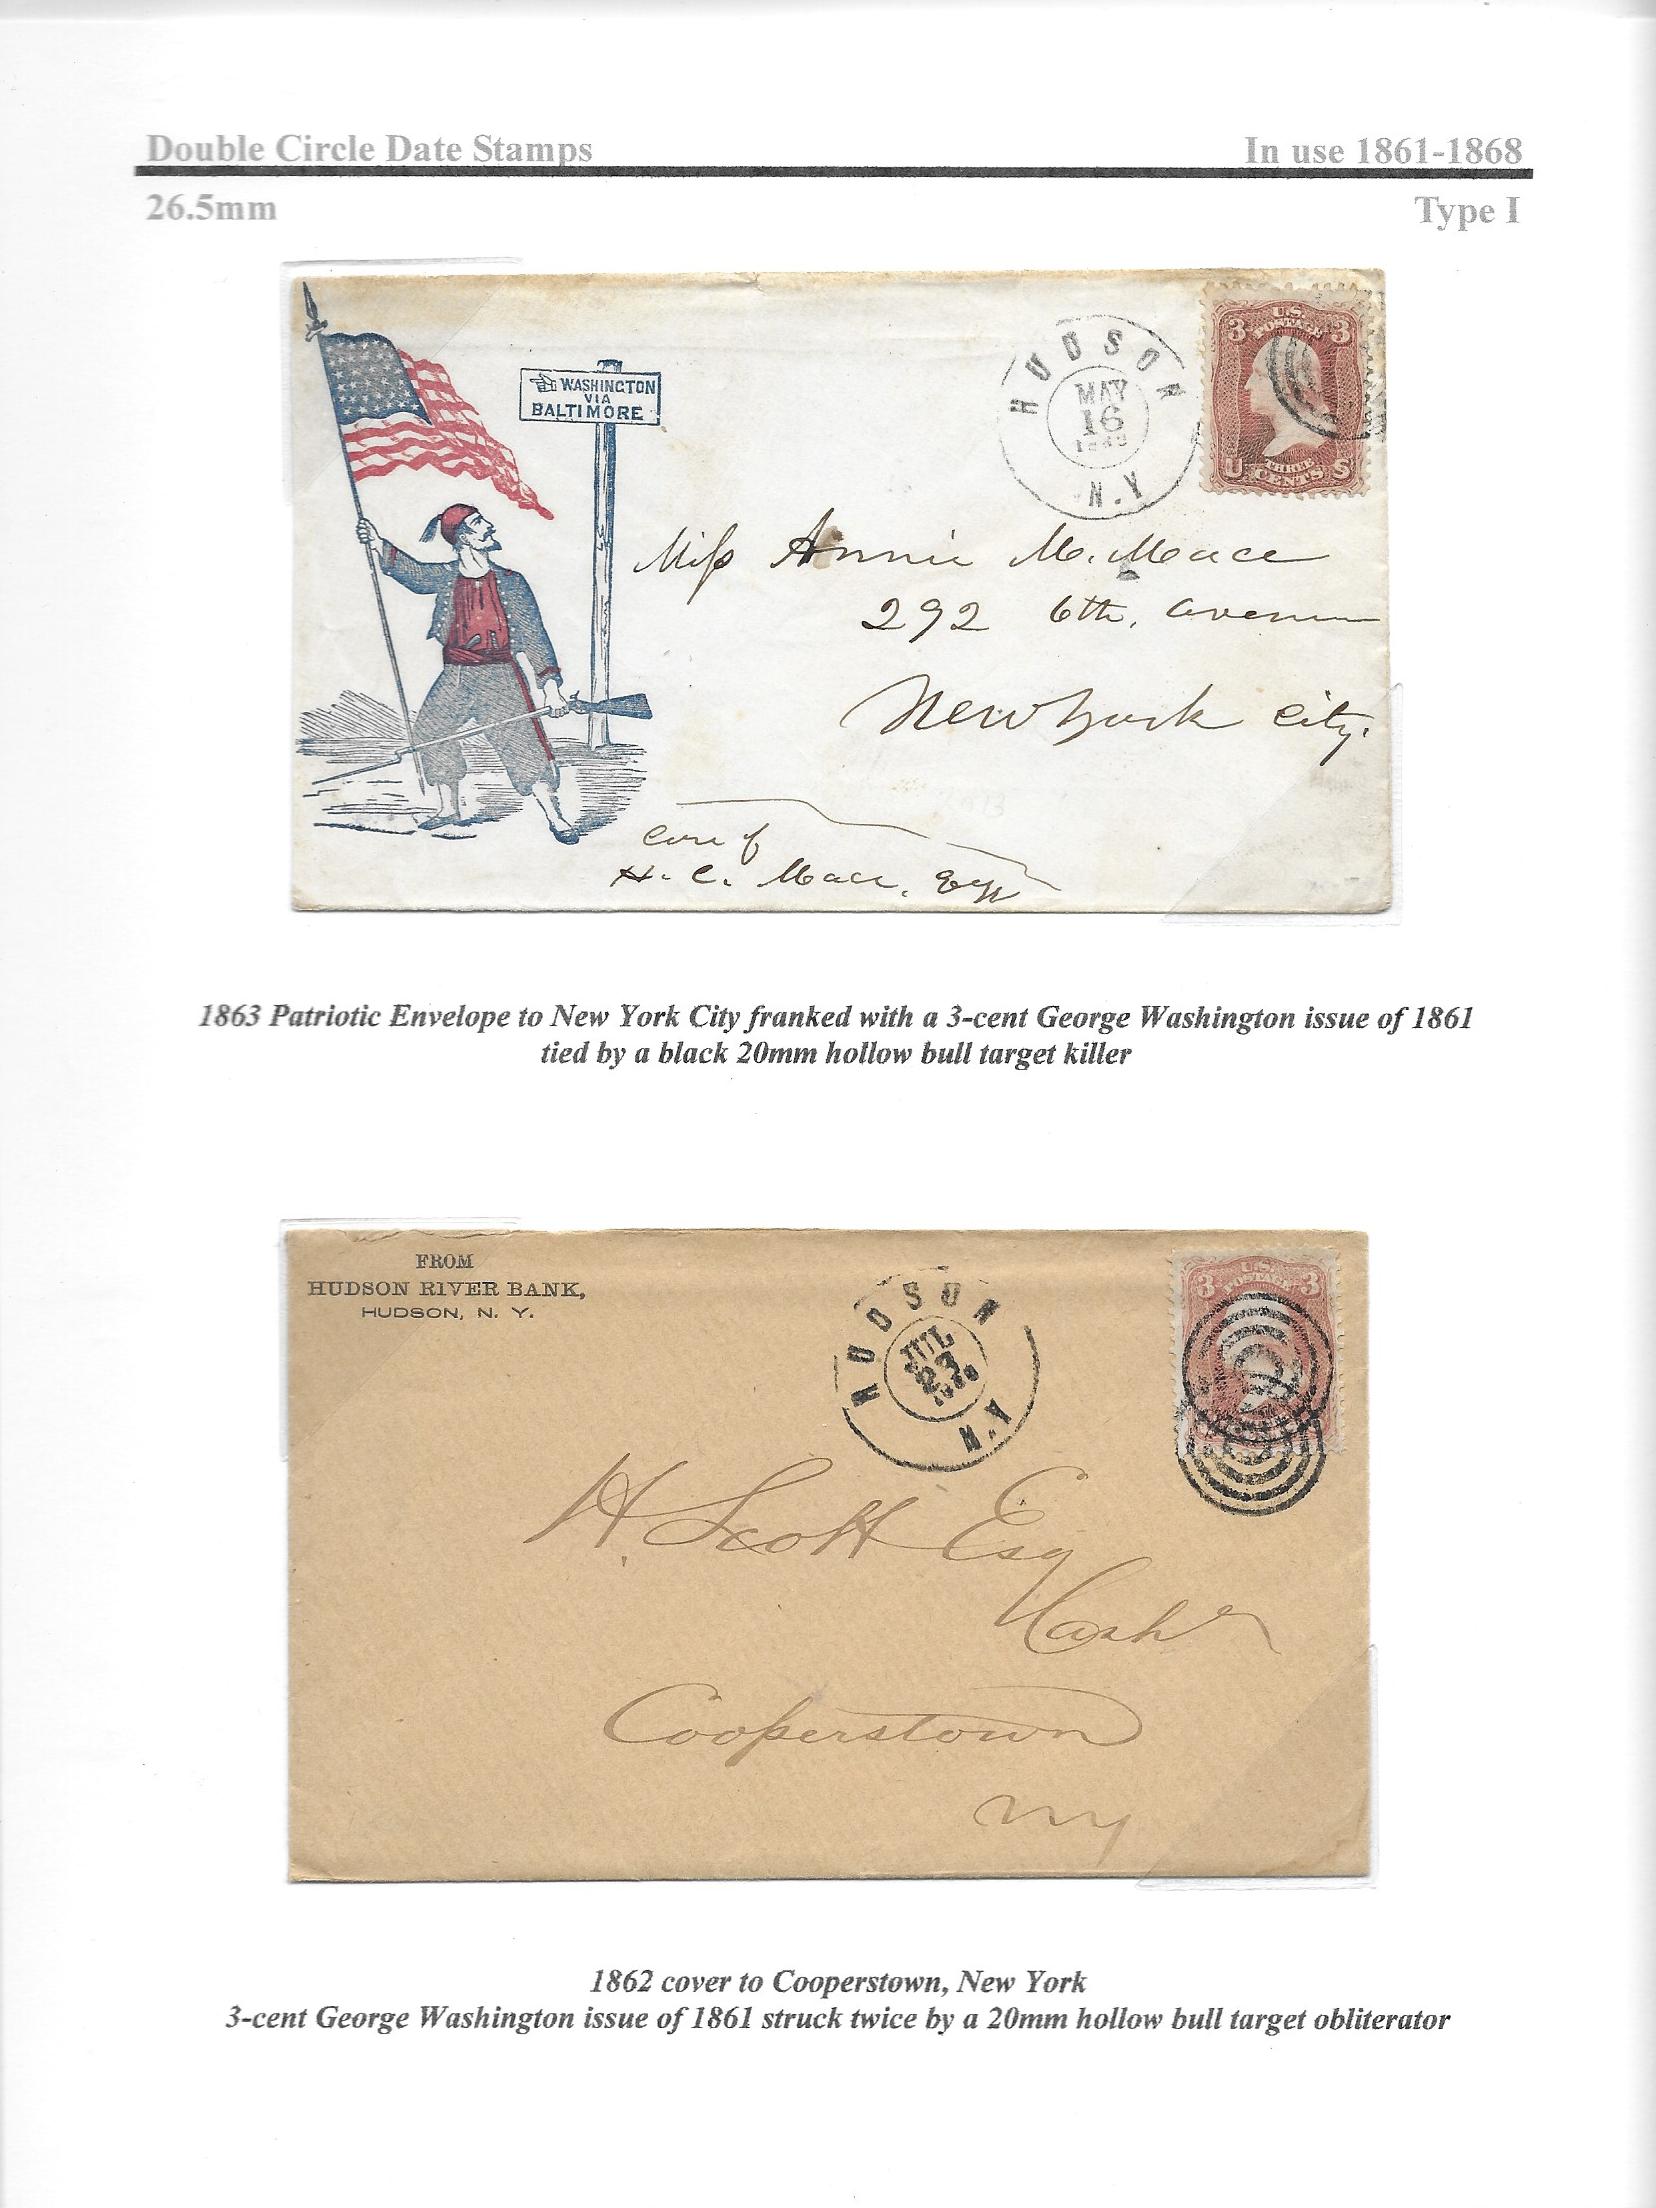 Double Circle Date Stamps In use 1861-1868
26.5mm Type I
WASHINGTON
VIA
BALTIMORE
HUDSON
MAY
16
N.Y
U.S.
POSTAGE
3 3
THREE
CENTS
U S
Miss Annie M. Mace
292 6th, Avenue
New York City.
Care of
H. C. Mace, Esq
1863 Patriotic Envelope to New York City franked with a 3-cent George Washington issue of 1861
tied by a black 20mm hollow bull target killer
FROM
HUDSON RIVER BANK,
HUDSON, N. Y.
HUDSON
JUL
23
N.Y
U.S.
POSTAGE
3 3
H. Scott Esq
Cashr
Cooperstown
NY
1862 cover to Cooperstown, New York
3-cent George Washington issue of 1861 struck twice by a 20mm hollow bull target obliterator